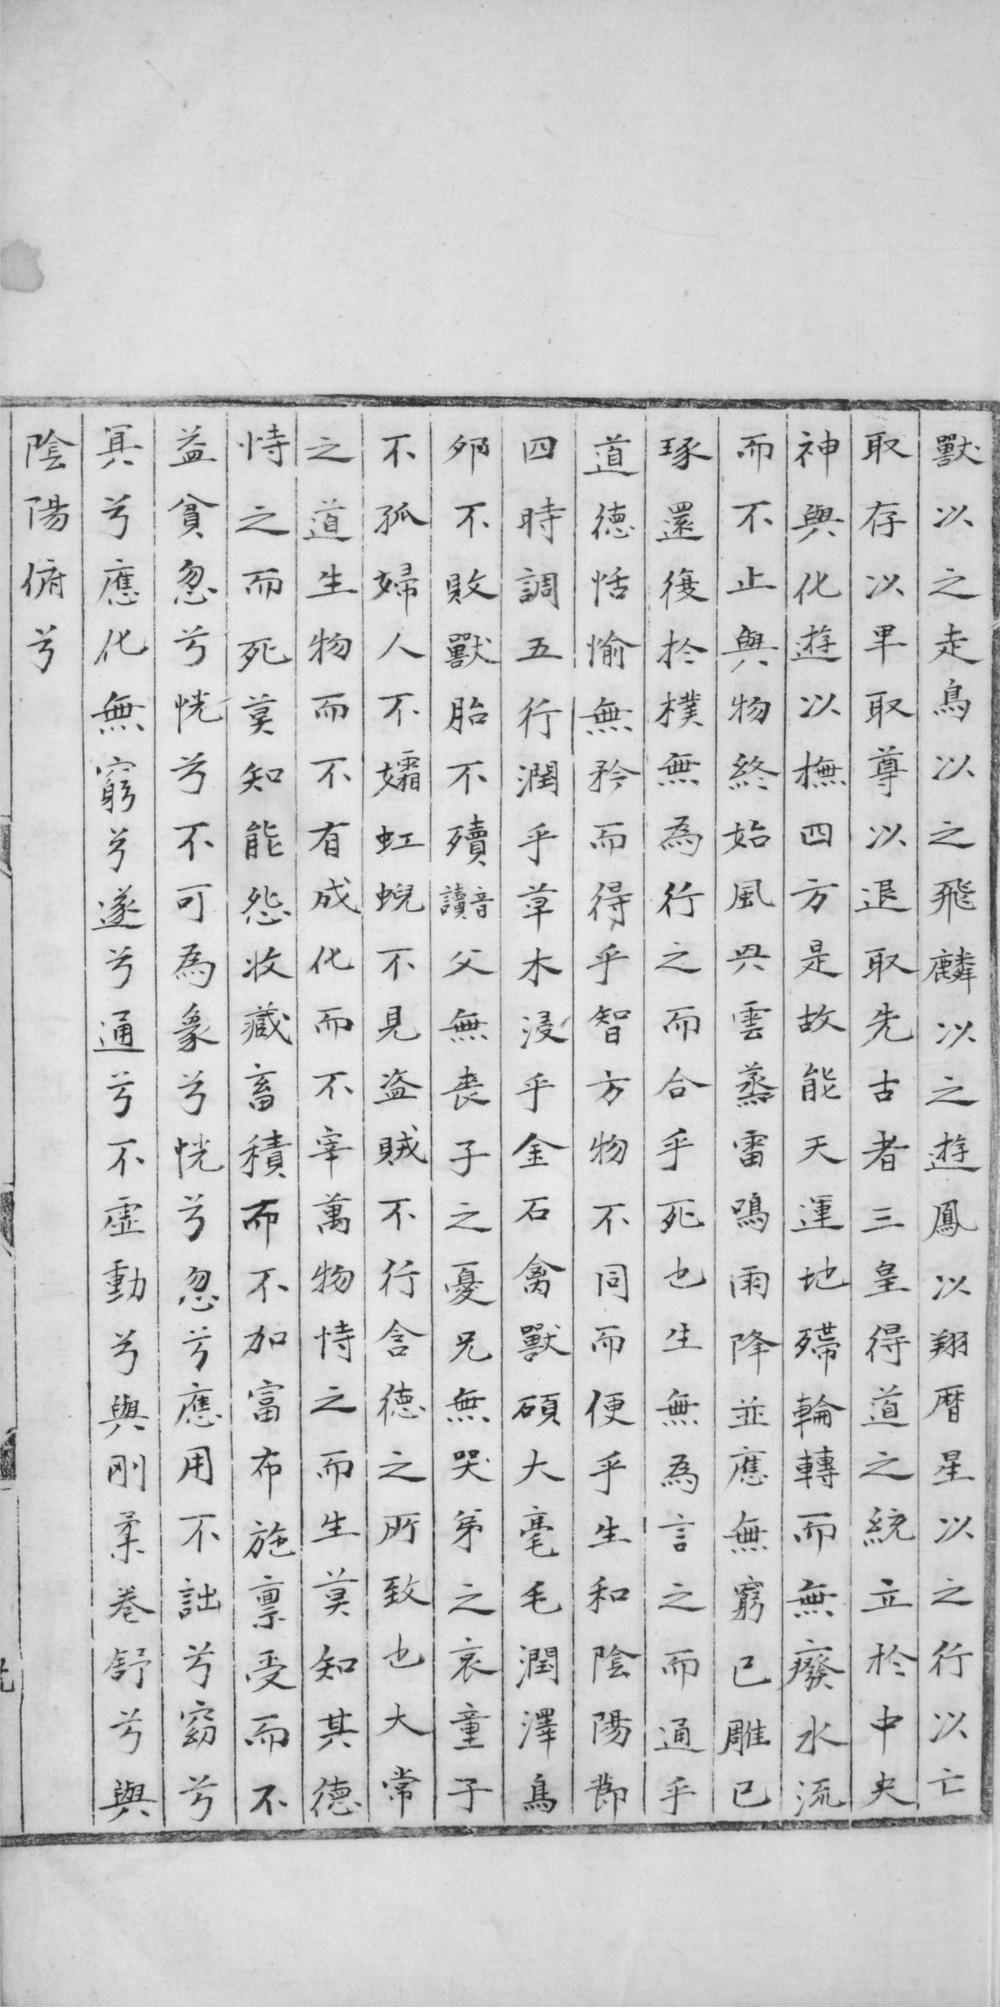 獸以之走鳥以之飛麟以之遊鳳以翔曆星以之行以亡
取存以卑取尊以退取先古者三皇得道之統立於中央
神與化遊以撫四方是故能天運地殢輪轉而無廢水流
而不止與物終始風興雲蒸雷鳴雨降並應無窮已雕已
琢還復於樸無為行之而合乎死也生無為言之而通乎
道德恬愉無矜而得乎智方物不同而便乎生和陰陽節
四時調五行潤乎草木浸乎金石禽獸碩大毫毛潤澤鳥
夘不敗獸胎不殰讀音父無喪子之憂兄無哭弟之哀童子
不孤婦人不孀虹蜺不見盜賊不行含德之所致也大常
之道生物而不有成化而不宰萬物恃之而生莫知其德
恃之而死莫知能怨收藏畜積而不加富布施禀受而不
益貧忽兮恍兮不可為象兮恍兮忽兮應用不詘兮窈兮
冥兮應化無窮兮遂兮通兮不虛動兮與剛柔卷舒兮與
陰陽俯兮